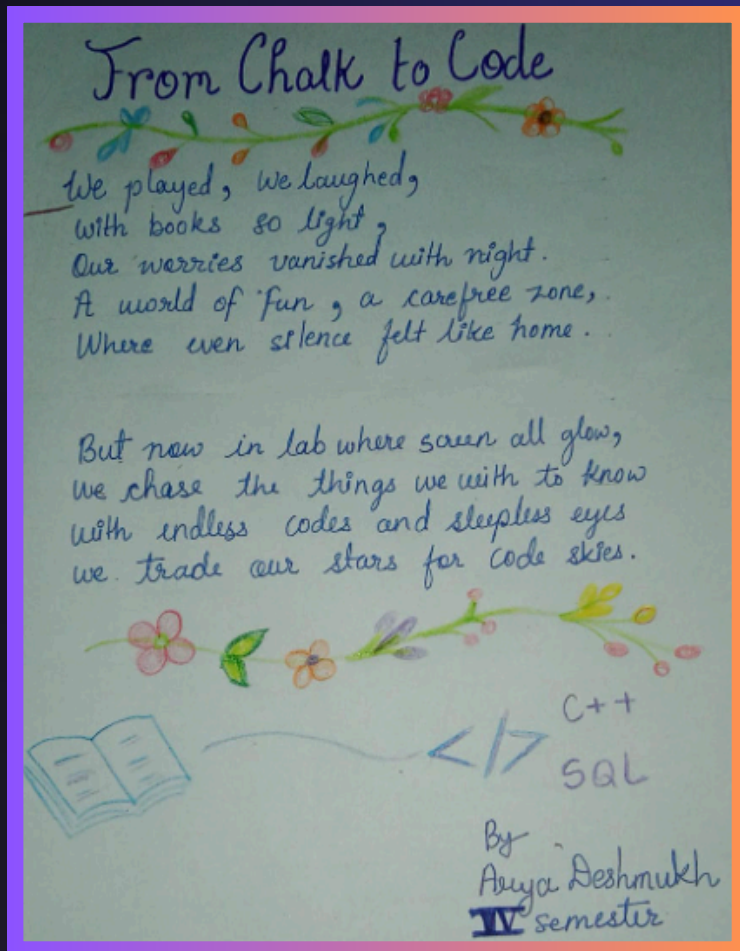 From Chalk to Code
We played, we laughed,
with books so light,
Our worries vanished with night.
A world of fun, a carefree zone,
Where even silence felt like home.
But now in lab where screen all glow,
we chase the things we with to know
with endless codes and sleepless eyes
we trade our stars for code skies.
</> C++
SQL
By
Arya Deshmukh
IV semester